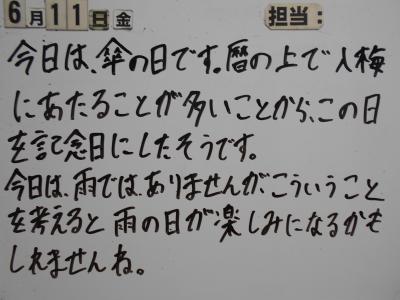 6月11日金 担当:
今日は、傘の日です。暦の上で入梅
にあたることが多いことから、この日
を記念日にしたそうです。
今日は、雨では、ありませんが、こういうこと
を考えると雨の日が楽しみになるかも
しれませんね。